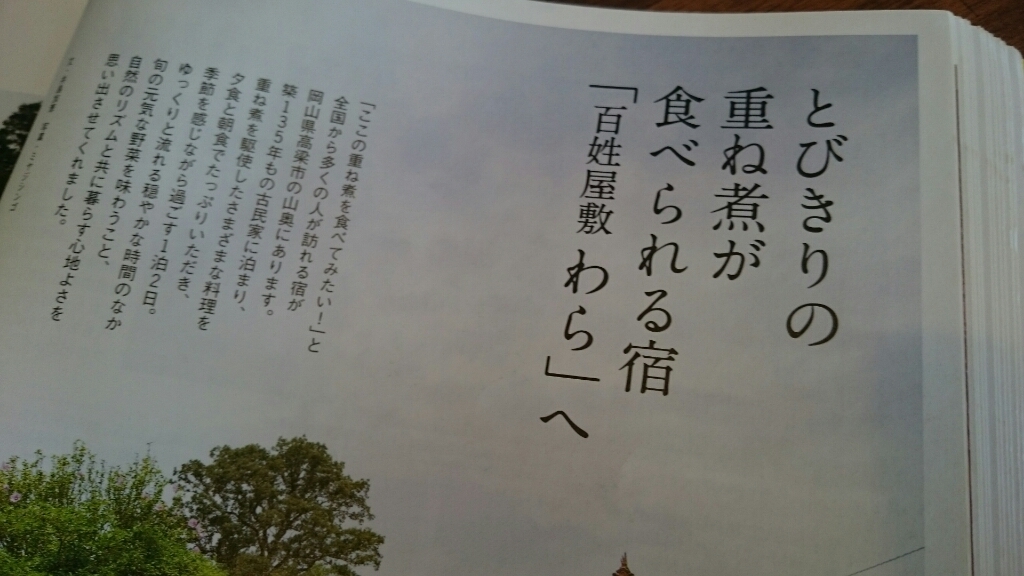 とびきりの
重ね煮が
食べられる宿
「百姓屋敷 わら」へ
「ここの重ね煮を食べてみたい！」と
全国から多くの人が訪れる宿が
岡山県高梁市の山奥にあります。
築135年もの古民家に泊まり、
重ね煮を駆使したさまざまな料理を
夕食と朝食でたっぷりいただき、
季節を感じながら過ごす1泊2日。
ゆっくりと流れる穏やかな時間のなか
旬の元気な野菜を味わうこと、
自然のリズムと共に暮らす心地よさを
思い出させてくれました。